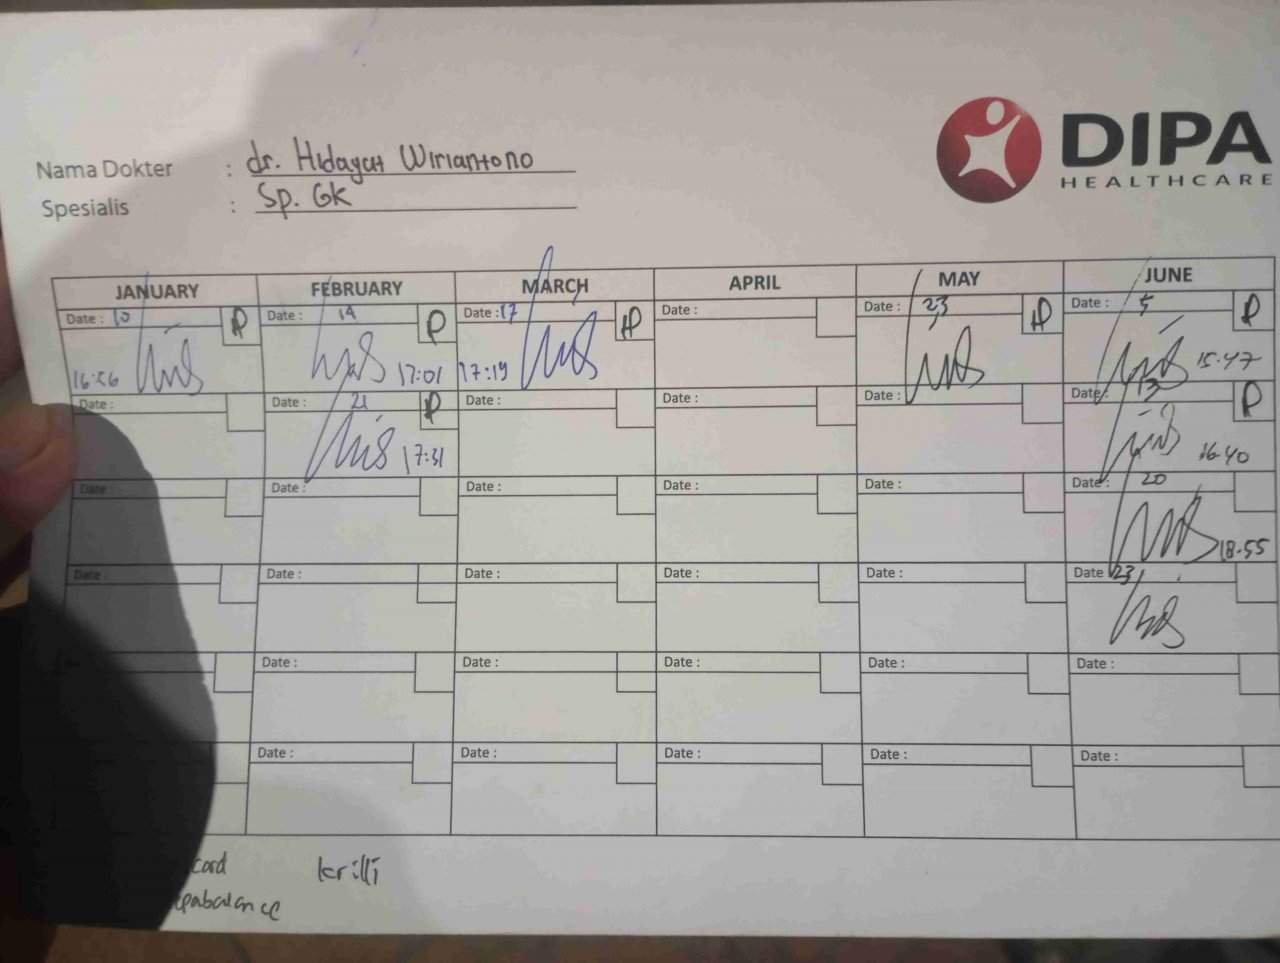 DIPA
HEALTHCARE
Nama Dokter : dr. Hidayat Wiriantono
Spesialis : Sp. GK
JANUARY FEBRUARY MARCH APRIL MAY JUNE
Date : 10 P Date : 14 P Date : 17 P Date : Date : 23 P Date : 5 P
16:56 17:01 17:19 15.47
Date : Date : 21 P Date : Date : Date : Date : 13 P
17:31 16.40
Date : Date : Date : Date : Date : Date : 20
18.55
Date : Date : Date : Date : Date : Date 23
Date : Date : Date : Date : Date :
Date : Date : Date : Date : Date :
card krilli